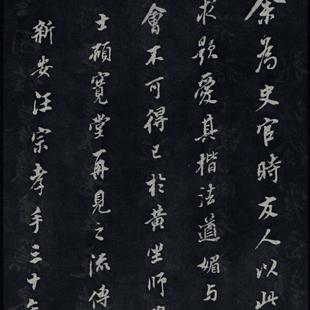 余為史官時友人以此
求題愛其楷法遒媚与
會不可得已於黃坐師
士碩寬堂再見之流傳
新安汪宗孝手三十年